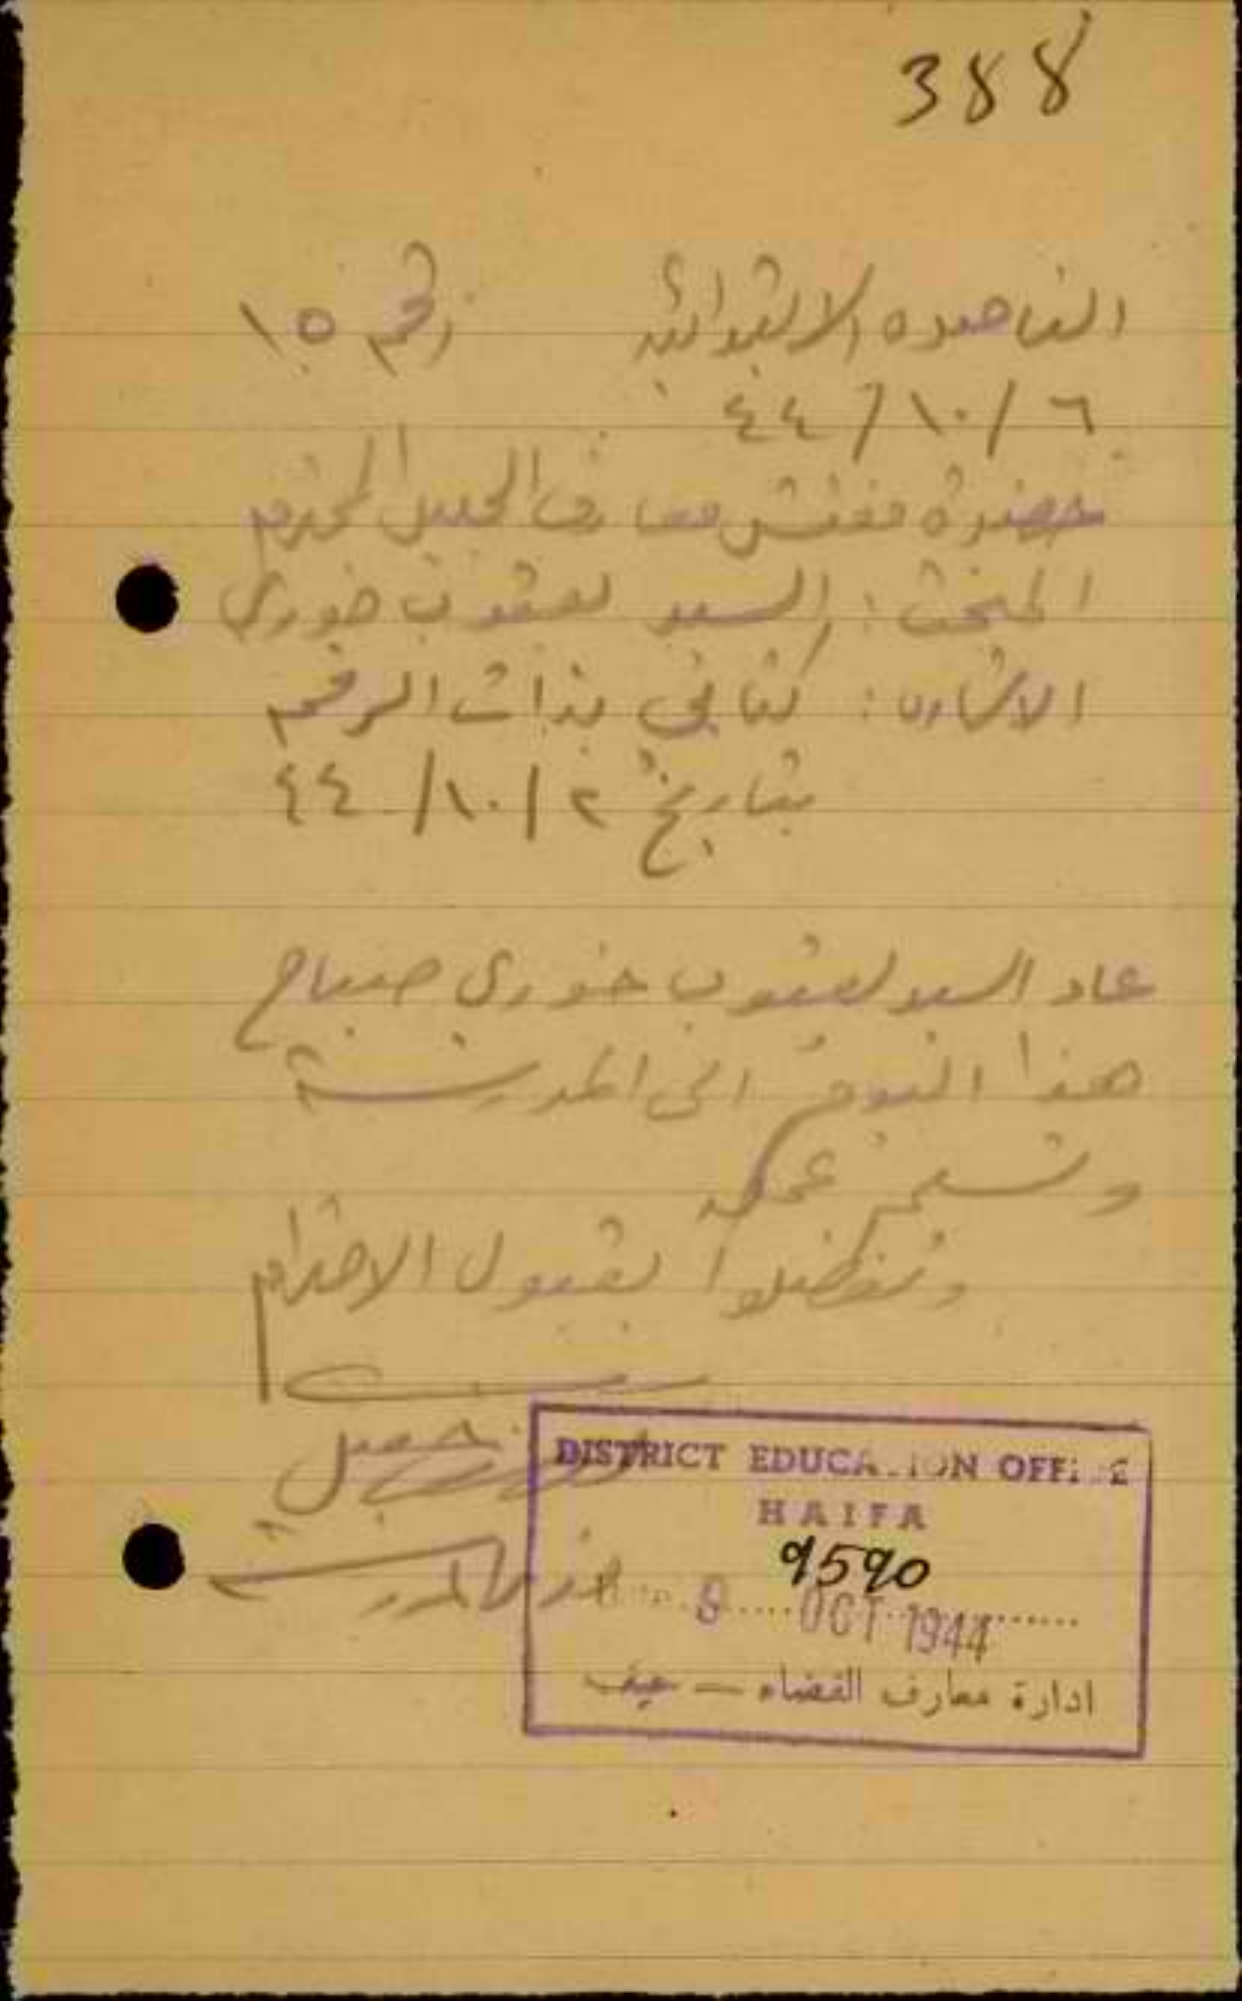 388
الناصره الابتدائية رقم ١٥
٤٤/١٠/٦
حضرة مفتش معارف الجليل المحترم
المبحث : السيد يعقوب خوري
الاشاره : كتابي بذات الرقم
بتاريخ ٤٤/١٠/٢
عاد السيد يعقوب خوري صباح
هذا اليوم الى المدرسة
وتسلم عمله
وتفضلوا بقبول الاحترام
DISTRICT EDUCATION OFFICE
HAIFA
9590
9 OCT 1944
ادارة معارف القضاء – حيفا